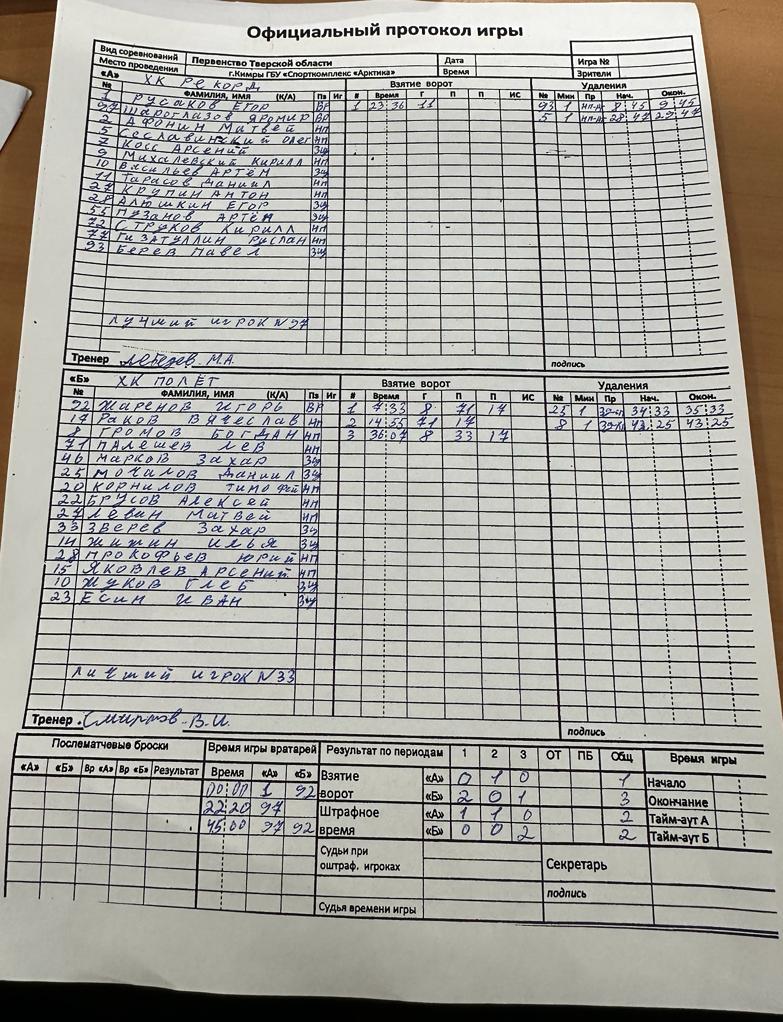 Официальный протокол игры
Вид соревнований Первенство Тверской области Дата Игра №
Место проведения г.Кимры ГБУ «Спорткомплекс «Арктика» Время Зрители
«А» ХК РЕКОРД Взятие ворот Удаления
№ ФАМИЛИЯ, ИМЯ (К/А) Пз Иг # Время Г П П ИС № Мин Пр Нач. Окон.
1 РУСАКОВ ЕГОР ВР 1 23 36 11 93 1 НП-Д 8 45 9 45
97 ШАРОГЛАЗОВ ЯРОМИР ВР 5 1 НП-Д 28 47 29 47
2 АФОНИН МАТВЕЙ НП
5 СЕСЛАВИНСКИЙ ОЛЕГ НП
7 КОСС АРСЕНИЙ ЗЩ
9 МИХАЛЕВСКИЙ КИРИЛЛ НП
10 ВАСИЛЬЕВ АРТЁМ ЗЩ
11 ТАРАСОВ ДАНИИЛ НП
27 КРУПИН АНТОН НП
28 АЛЮШКИН ЕГОР ЗЩ
55 ПУЗАНОВ АРТЁМ НП
72 СТРУКОВ КИРИЛЛ НП
77 ГИЗАТУЛЛИН РУСЛАН НП
93 БЕРЕВ ПАВЕЛ ЗЩ
ЛУЧШИЙ ИГРОК N97
Тренер Лебедев М.А. подпись
«Б» ХК ПОЛЁТ Взятие ворот Удаления
№ ФАМИЛИЯ, ИМЯ (К/А) Пз Иг # Время Г П П ИС № Мин Пр Нач. Окон.
92 ЖАРЕНОВ ИГОРЬ ВР 1 7 33 8 71 17 23 1 34 33 35 33
17 РАКОВ ВЯЧЕСЛАВ НП 2 14 55 71 17 8 1 42 25 43 25
8 ГРОМОВ БОГДАН НП 3 36 07 8 33 17
71 ПАЛЕШЕВ ЛЕВ НП
46 МАРКОВ ЗАХАР ЗЩ
25 МОЧАЛОВ ДАНИИЛ ЗЩ
20 КОРНИЛОВ ТИМОФЕЙ НП
22 БРУСОВ АЛЕКСЕЙ НП
27 ЛЕВИН МАТВЕЙ НП
33 ЗВЕРЕВ ЗАХАР ЗЩ
14 ЖИЖИН ИЛЬЯ ЗЩ
28 ПРОКОФЬЕВ ЮРИЙ НП
15 ЯКОВЛЕВ АРСЕНИЙ НП
10 ЖУКОВ ГЛЕБ ЗЩ
23 ЕСИН ИВАН ЗЩ
ЛУЧШИЙ ИГРОК N33
Тренер Смирнов В.И. подпись
Послематчевые броски Время игры вратарей Результат по периодам 1 2 3 ОТ ПБ Общ Время игры
«А» «Б» Вр «А» Вр «Б» Результат Время «А» «Б» Взятие ворот «А» 0 1 0 1 Начало
00 00 1 92 «Б» 2 0 1 3 Окончание
22 20 97 Штрафное время «А» 1 1 0 2 Тайм-аут А
45 00 97 92 «Б» 0 0 2 2 Тайм-аут Б
Судьи при оштраф. игроках Секретарь
подпись
Судья времени игры